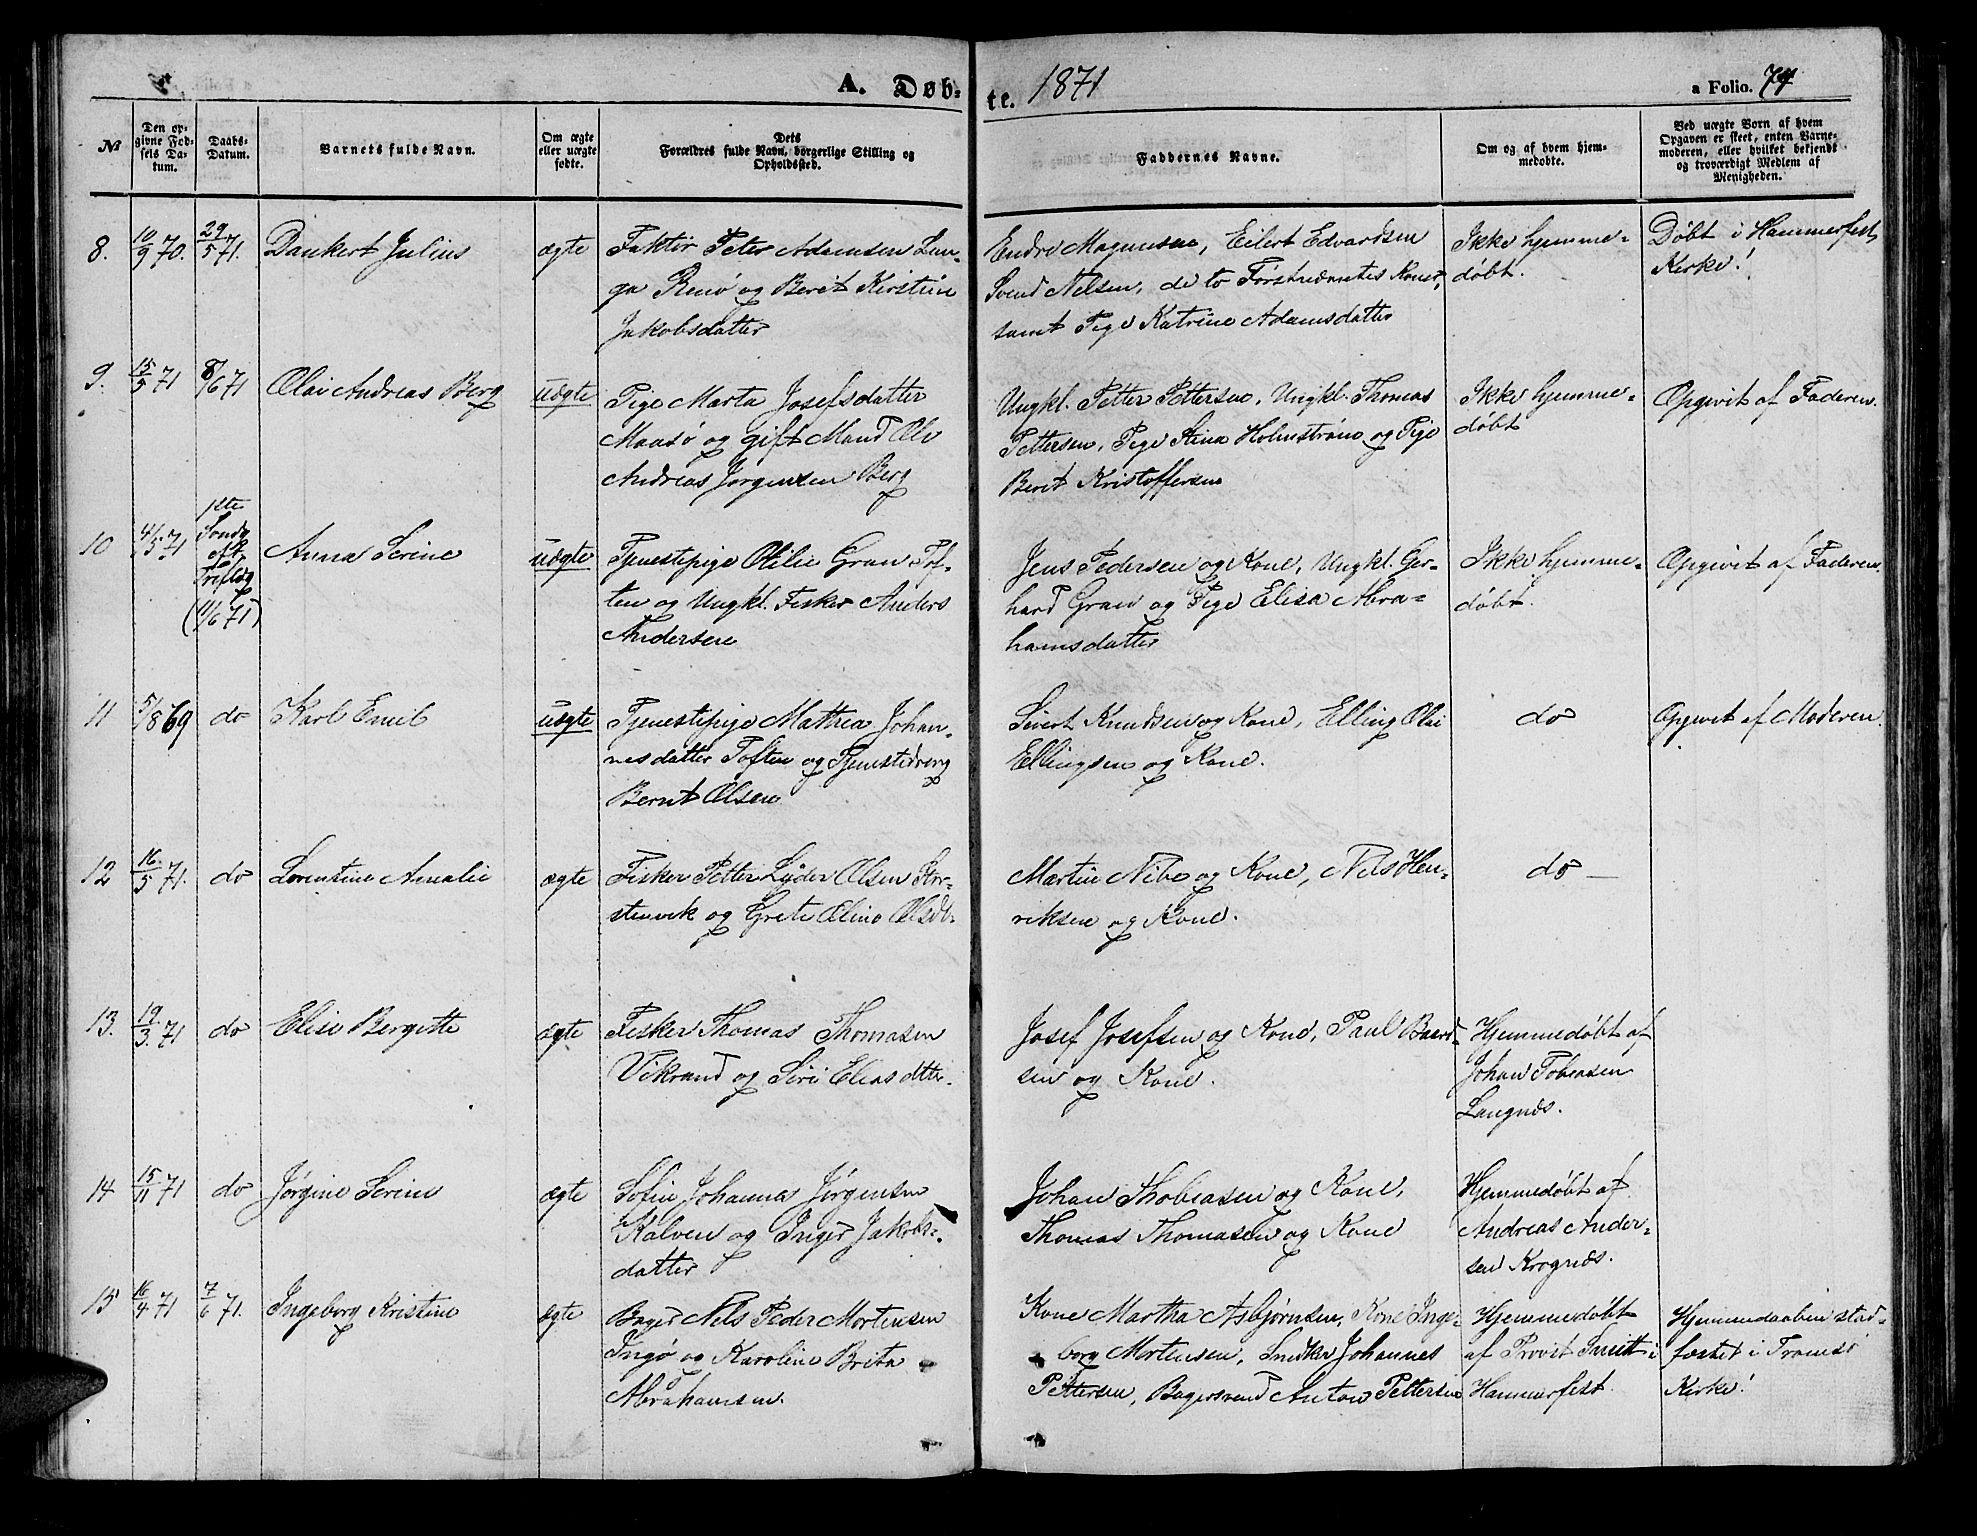 A. Døb-
te. 1871
a Folio. 74
No
Den op-
givne Fød-
sels Da-
tum.
Daabs-
Datum.
Barnets fulde Navn.
Om ægte
eller uægte
fødte.
Dets
Forældres fulde Navn, borgerlige Stilling og
Opholdssted.
Faddernes Navne.
Om og af hvem hjem-
medøbte.
Ved uægte Børn af hvem
Opgaven er skeet, enten Barne-
moderen, eller hvilket bekjendt
og troværdigt Medlem af
Menigheden.
8. 10/9 70. 29/5 71. Dankert Julius ægte
Faktor Peter Adamsen Lun-
ge Renø og Berit Kirstine
Jakobsdatter
Endre Magnussen, Eilert Edvardsen
Svend Nelsen, de to Førstnævntes Koner,
samt Pige Katrine Adamsdatter
Ikke hjemme-
døbt.
Døbt i Hammerfest
Kirke!
9. 15/5 71 8/6 71 Olai Andreas Berg uægte
Pige Marta Josefsdatter
Maasø og gift Mand Ole
Andreas Jørgensen Berg
Ungkl. Petter Pettersen, Ungkl. Thomas
Pettersen, Pige Stina Holmstrøm og Pige
Berit Kristoffersen
Ikke hjemme-
døbt
Opgivet af Faderen.
10 4/5 71
1ste
Søndg
eft.
Trefldg
(11/6 71)
Anna Serine uægte
Tjenestepige Olilie Gran Tof-
ten og Ungkl. Fisker Anders
Andersen
Jens Pedersen og Kone, Ungkl. Ger-
hard Gran og Pige Elisa Abra-
hamsdatter
Ikke hjemme-
døbt.
Opgivet af Faderen.
11 5/8 69 do Karl Emil uægte
Tjenestepige Mathea Johan-
nesdatter Toften og Tjenestedreng
Bernt Olsen
Sivert Knudsen og Kone, Elling Olai
Ellingsen og Kone.
do
Opgivet af Moderen.
12 16/5 71. do Lorentine Amalie ægte
Fisker Petter Lyder Olsen Stor-
stenvik og Grete Oline Olsdt.
Martin Nibe og Kone, Nils Hen-
riksen og Kone.
do
13. 19/3. 71 do Elise Bergitte ægte
Fisker Thomas Thomasen
Vikrand og Siri Eliasdtter.
Josef Josefsen og Kone, Paul Baard-
sen og Kone.
Hjemmedøbt af
Johan Tobiasen
Langnæs.
14 15/11 71 do Jørgine Serine ægte
Sofin Johanna Jørgensen
Kalven og Inger Jakobs-
datter
Johan Thobiasen og Kone,
Thomas Thomasen og Kone
Hjemmedøbt af
Andreas Ander-
sen Krognæs.
15 16/4 71 7/6 71. Ingeborg Kristine ægte
Bager Nels Peder Mortensen
Ingø og Karoline Brita
Abrahamsen.
Kone Martha Asbjørnsen, Kone Inge-
borg Mortensen, Snedker Johannes
Pettersen, Bagersvend Anton Pettersen
Hjemmedøbt
af Provst Smitt i
Hammerfest.
Hjemmedaaben stad-
fæstet i Tromsø
Kirke!